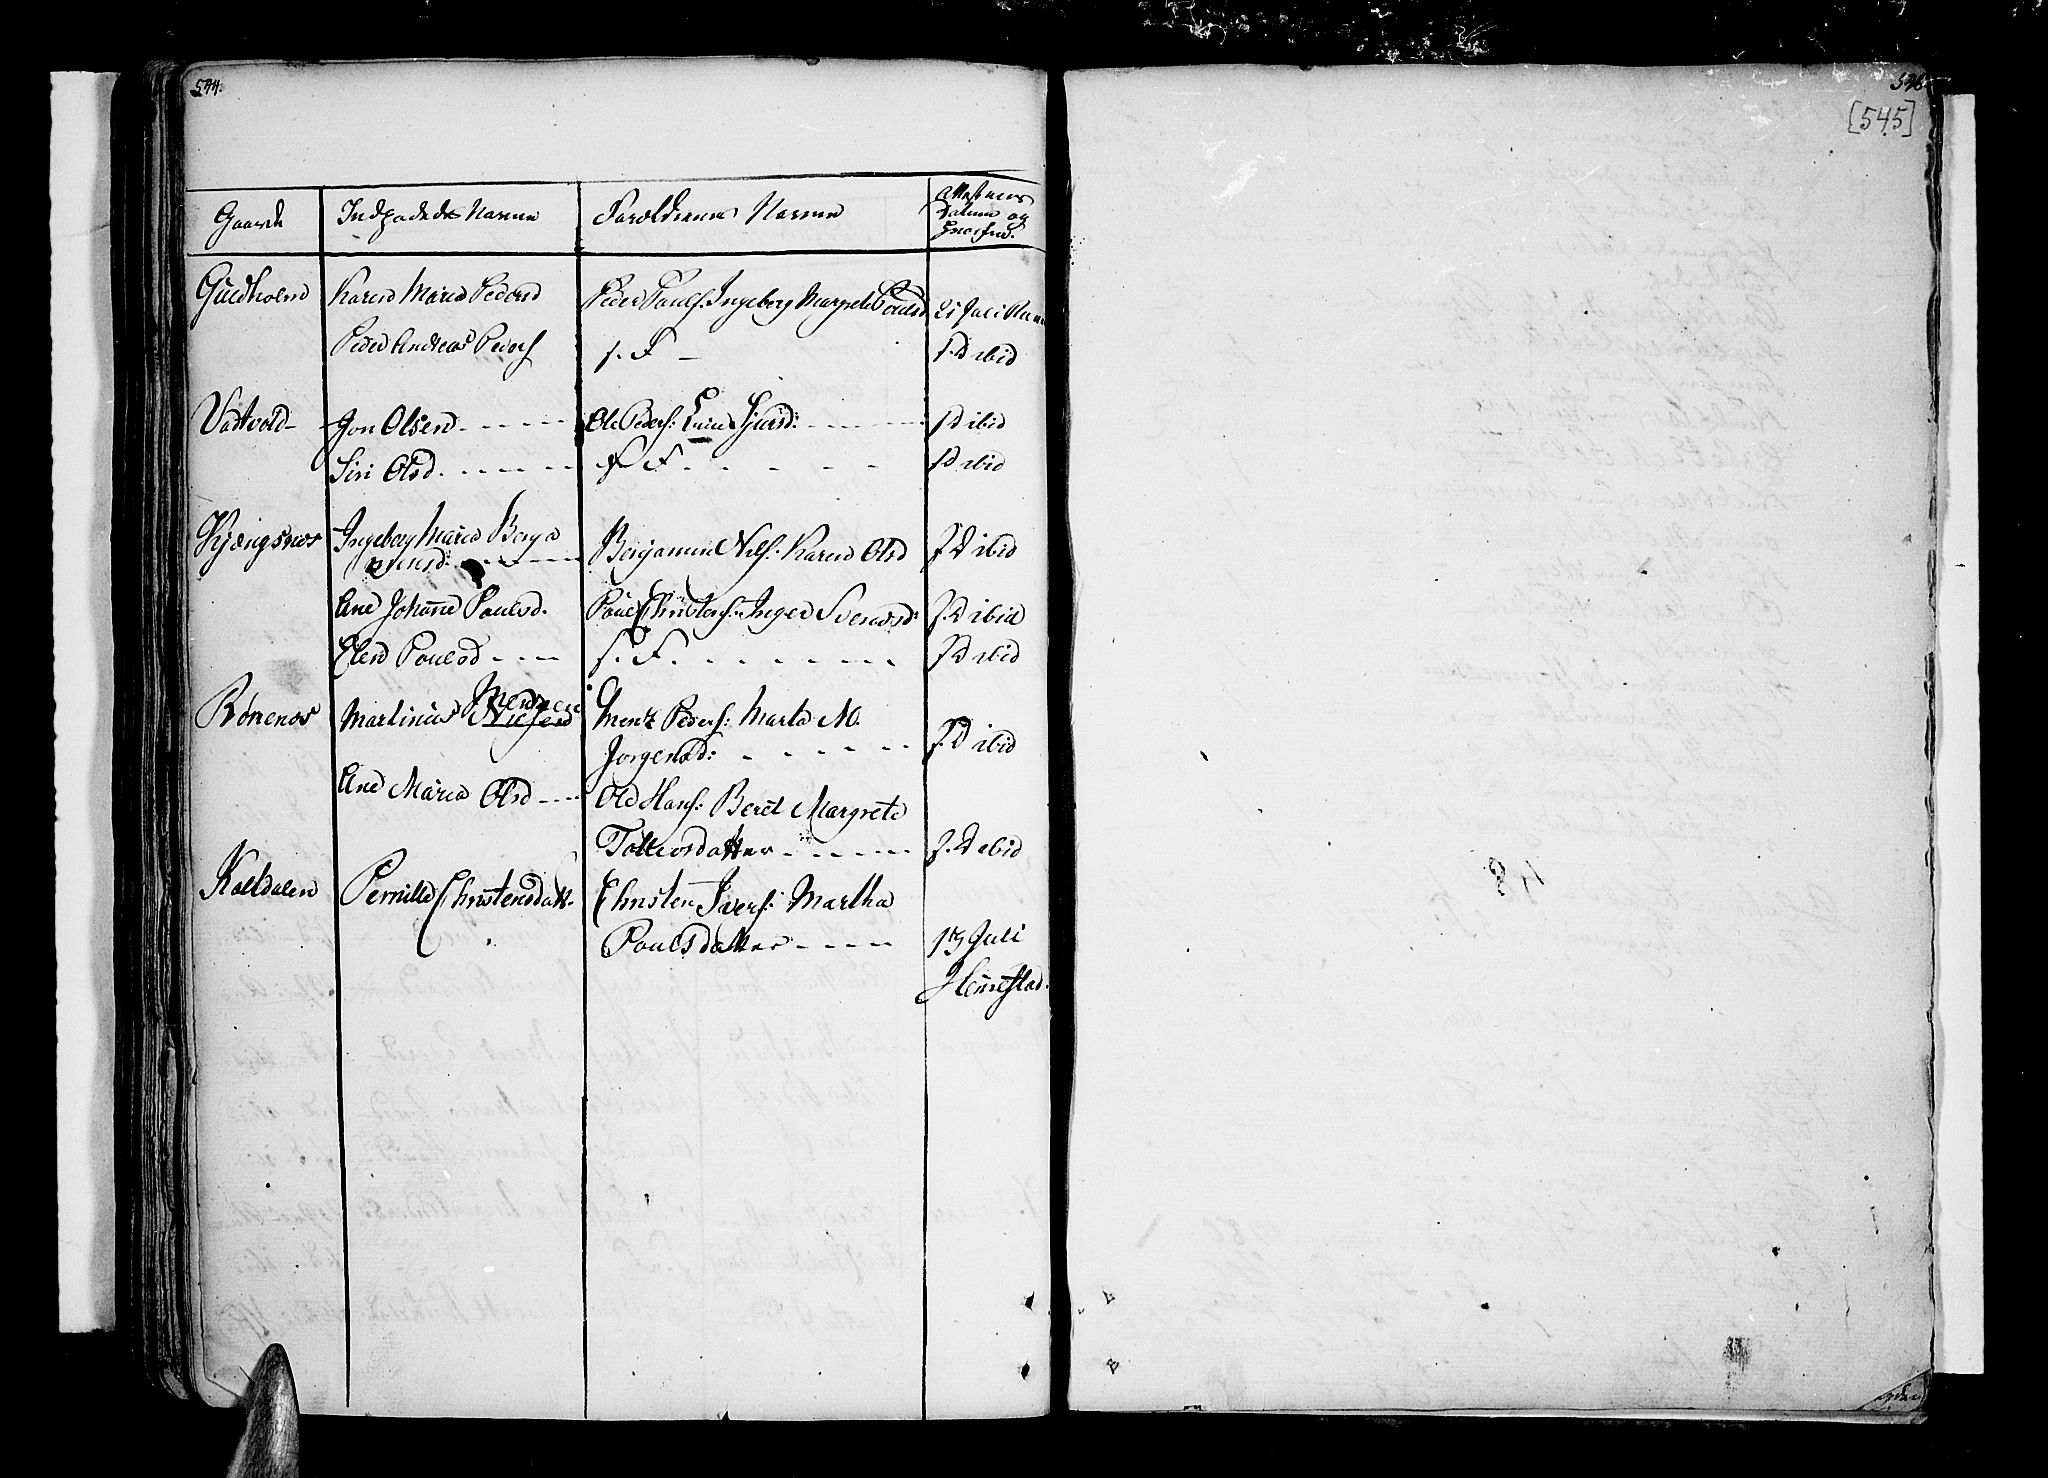 544.
Gaarde Indpodedes Navne Foreldrenes Navne Attestens Datum og
Guldholm Karen Maria Pedersd Peder Pauls. Ingeborg Margrete Poulsd 21 Juli
Peder Andreas Peders s. F - s. D ibid
Vadtvold Jon Olsen Ole Peders: Sjursd: s D ibid
Siri Olsd. s F s D ibid
Kjængsnæs Ingeborg Maria Benja
minsd: Benjamin Nils: Karen Olsd s D ibid
Ane Johanne Poulsd. Poul Christens: Inger Svendsd: s. D ibid
Elen Poulsd s. F. s D ibid
Martinus Nielsen Mentz Peders: Marta M.
Jørgensd: s. D ibid
Ane Maria Olsd Ole Hans: Berit Margrete
Tollevsdatter s. D ibid
Kaldalen Pernille Christensdatt. Christen Ivers: Martha
Poulsdatter 13 Juli
Hennestad.
[545]